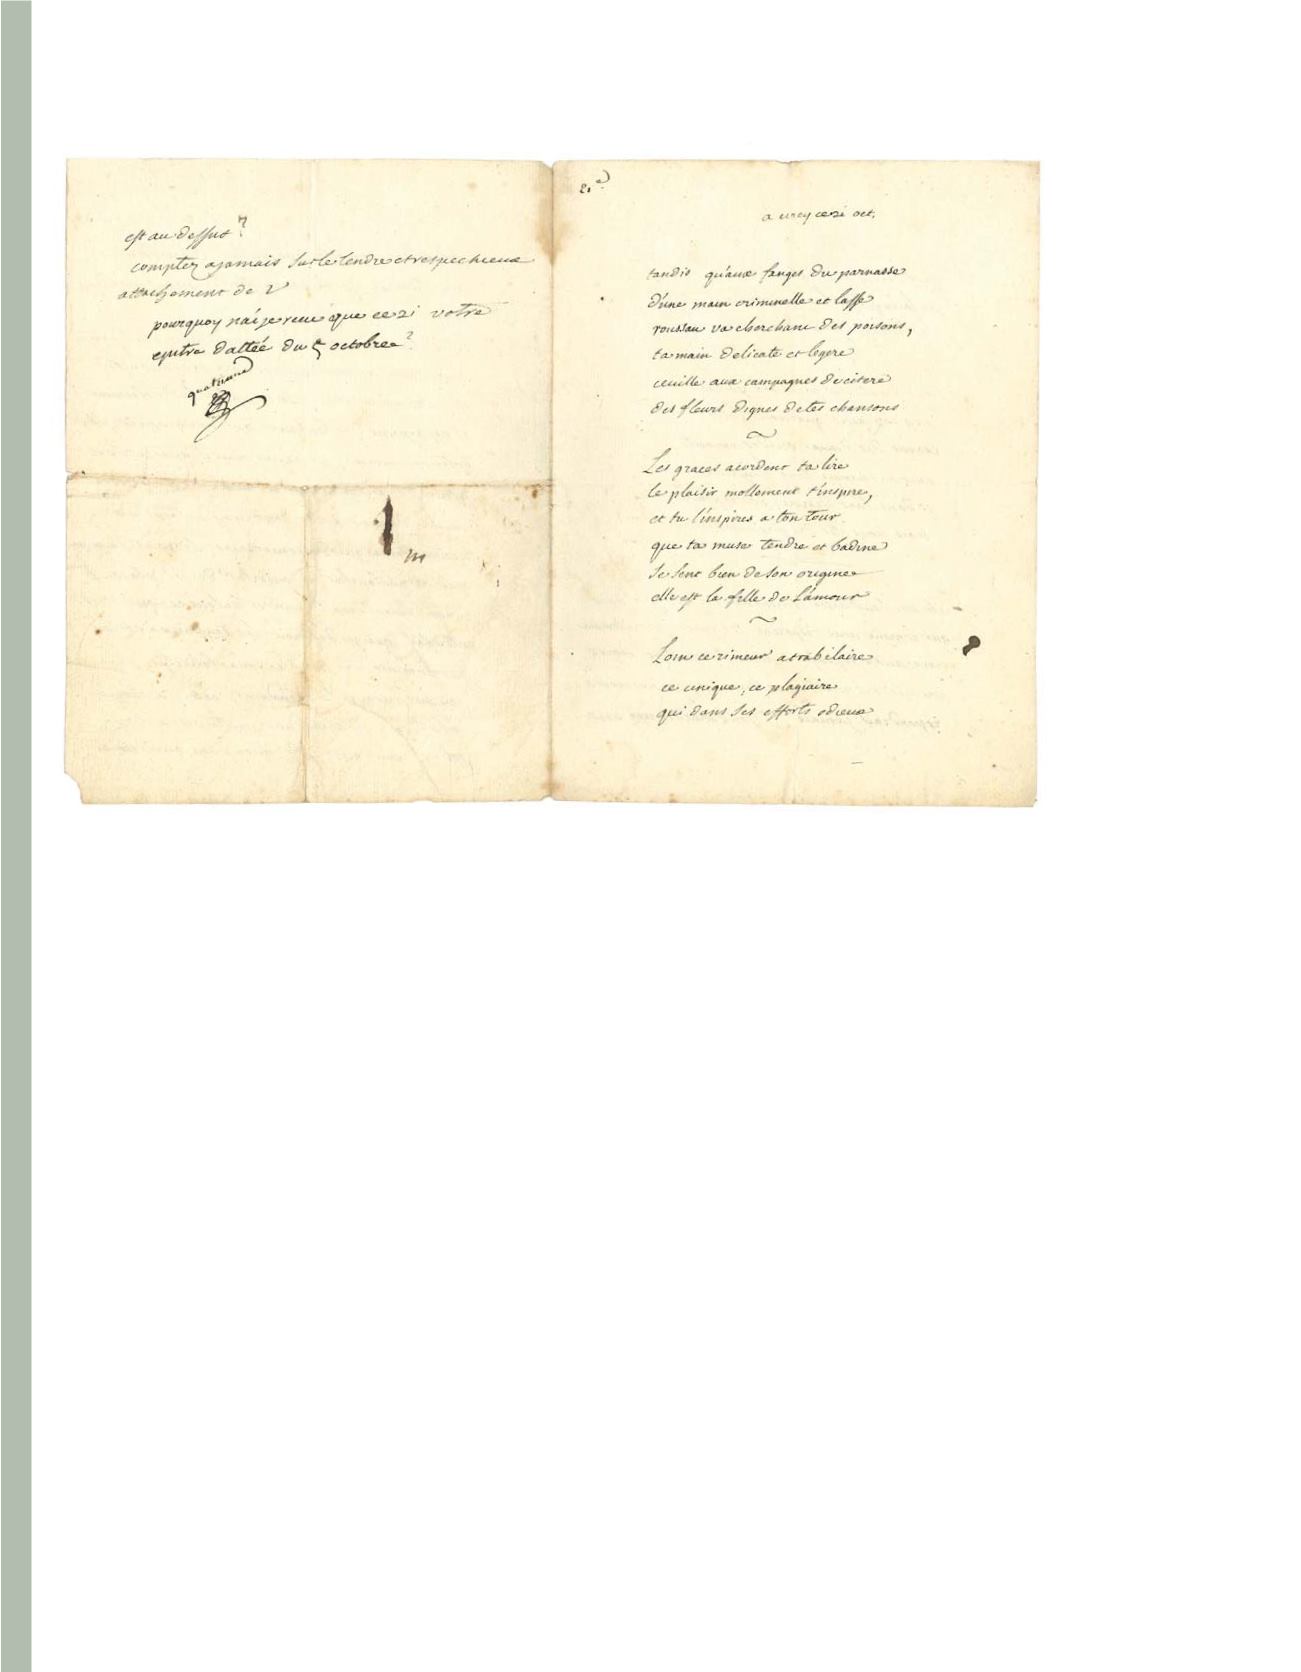 est au dessus?
comptez a jamais sur le tendre et respectueux
attachement de V
pourquoy n'ai je receu que ce 21 votre
epitre dattée du 5 octobre?
m
21e
a cirey ce 21 oct.
tandis qu'aux fanges du parnasse
d'une main criminelle et lasse
roussau va cherchant des poisons,
ta main delicate et legere
ceuille aux campagnes de citere
des fleurs dignes de tes chansons
Les graces acordent ta lire
le plaisir mollement t'inspire,
et tu l'inspires a ton tour
que ta muse tendre et badine
se sent bien de son origine
elle est la fille de l'amour
Loin ce rimeur atrabilaire
ce cinique, ce plagiaire
qui dans ses efforts odieux